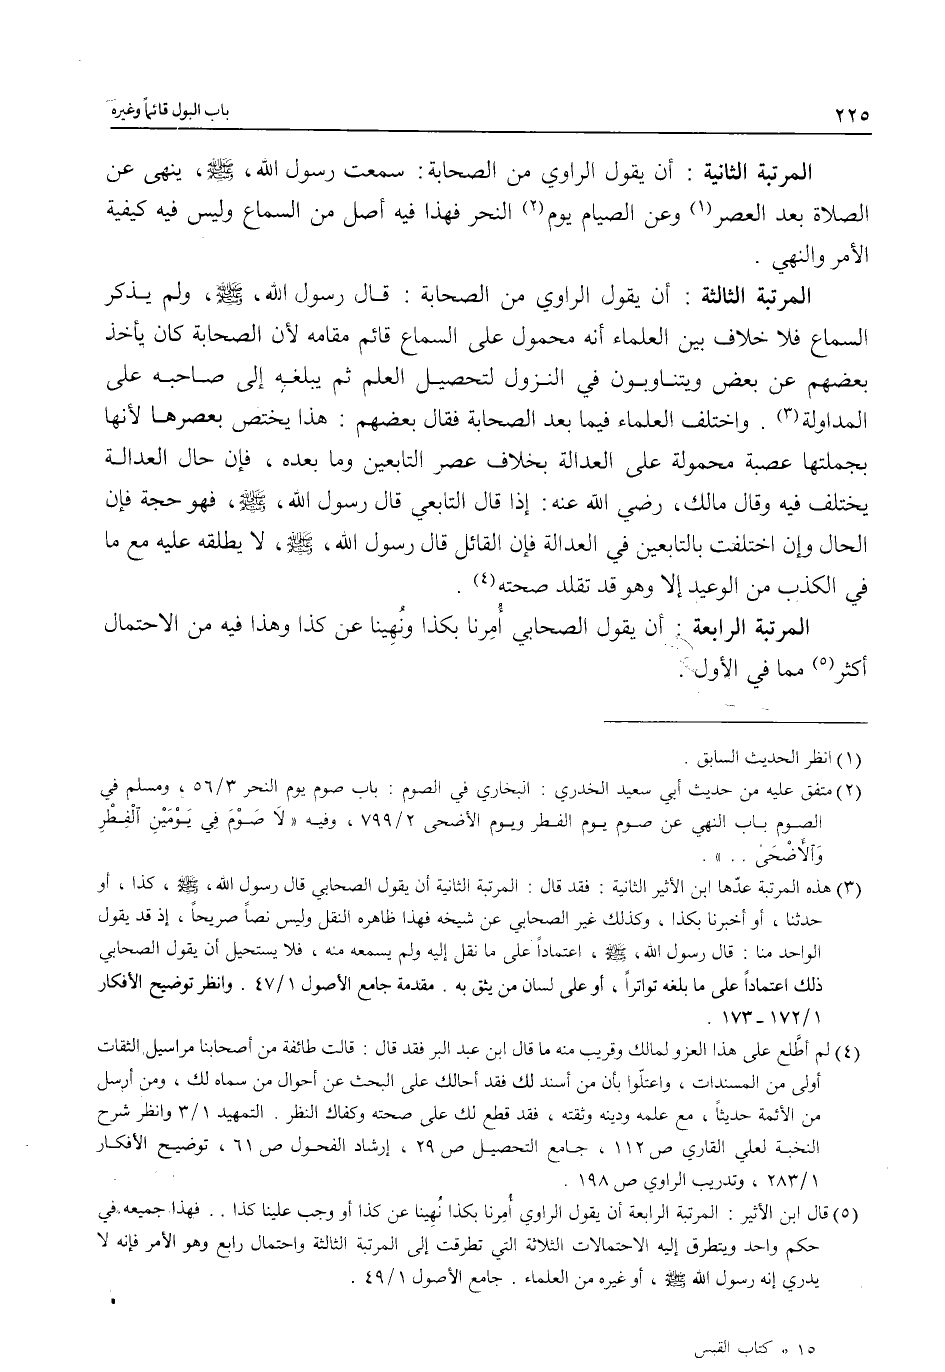 ٢٢٥
باب البول قائماً وغيره
المرتبة الثانية : أن يقول الراوي من الصحابة : سمعت رسول الله، ﷺ، ينهى عن
الصلاة بعد العصر(١) وعن الصيام يوم(٢) النحر فهذا فيه أصل من السماع وليس فيه كيفية
الأمر والنهي .
المرتبة الثالثة : أن يقول الراوي من الصحابة : قـال رسول الله، ﷺ، ولم يـذكر
السماع فلا خلاف بين العلماء أنه محمول على السماع قائم مقامه لأن الصحابة كان يأخذ
بعضهم عن بعض ويتنـاوبـون في النـزول لتحصيـل العلم ثم يبلغـه إلى صـاحبـه على
المداولة(٣) . واختلف العلماء فيما بعد الصحابة فقال بعضهم : هذا يختص بعصرهـا لأنها
بجملتها عصبة محمولة على العدالة بخلاف عصر التابعين وما بعده ، فإن حال العدالـة
يختلف فيه وقال مالك، رضي الله عنه : إذا قال التابعي قال رسول الله، ﷺ، فهو حجة فإن
الحال وإن اختلفت بالتابعين في العدالة فإن القائل قال رسول الله، ﷺ، لا يطلقه عليه مع ما
في الكذب من الوعيد إلا وهو قد تقلد صحته(٤) .
المرتبة الرابعة : أن يقول الصحابي أُمِرنا بكذا ونُهِينا عن كذا وهذا فيه من الاحتمال
أكثر(٥) مما في الأول .
(١) انظر الحديث السابق .
(٢) متفق عليه من حديث أبي سعيد الخدري : البخاري في الصوم : باب صوم يوم النحر ٥٦/٣ ، ومسلم في
الصـوم بـاب النهي عن صـوم يـوم الفـطر ويـوم الأضحى ٧٩٩/٢ ، وفيـه « لاَ صَـوْمَ فِي يَـوْمَيْنِ اَلْفِـطْرِ
وَاَلأَضْحَىٰ . . » .
(٣) هذه المرتبة عدّها ابن الأثير الثانية : فقد قال : المرتبة الثانية أن يقول الصحابي قال رسول الله، ﷺ ، كذا ، أو
حدثنا ، أو أخبرنا بكذا ، وكذلك غير الصحابي عن شيخه فهذا ظاهره النقل وليس نصاً صريحاً ، إذ قد يقول
الواحد منا : قال رسول الله، ﷺ ، اعتماداً على ما نقل إليه ولم يسمعه منه ، فلا يستحيل أن يقول الصحابي
ذلك اعتماداً على ما بلغه تواتراً ، أو على لسان من يثق به . مقدمة جامع الأصول ٤٧/١ . وانظر توضيح الأفكار
١٧٢/١ ـ ١٧٣ .
(٤) لم أطَّلع على هذا العزو لمالك وقريب منه ما قال ابن عبد البر فقد قال : قالت طائفة من أصحابنا مراسيل الثقات
أولى من المسندات ، واعتلّوا بأن من أسند لك فقد أحالك على البحث عن أحوال من سماه لك ، ومن أرسل
من الأئمة حديثاً ، مع علمه ودينه وثقته ، فقد قطع لك على صحته وكفاك النظر . التمهيد ٣/١ وانظر شرح
النخبة لعلي القاري ص ١١٢ ، جـامع التحصيـل ص ٢٩ ، إرشاد الفحول ص ٦١ ، توضيـح الأفكـار
٢٨٣/١ ، وتدريب الراوي ص ١٩٨ .
(٥) قال ابن الأثير : المرتبة الرابعة أن يقول الراوي أُمِرنا بكذا نُهِينا عن كذا أو وجب علينا كذا . . فهذا جميعه في
حكم واحد ويتطرق إليه الاحتمالات الثلاثة التي تطرقت إلى المرتبة الثالثة واحتمال رابع وهو الأمر فإنه لا
يدري إنه رسول الله ﷺ ، أو غيره من العلماء . جامع الأصول ٤٩/١ .
١٥ * كتاب القبس